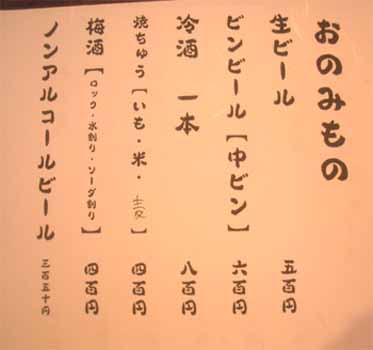 おのみもの
生ビール 五百円
ビンビール【中ビン】 六百円
冷酒 一本 八百円
焼ちゅう【いも・米・麦】 四百円
梅酒【ロック・水割り・ソーダ割り】 四百円
ノンアルコールビール 三百五十円